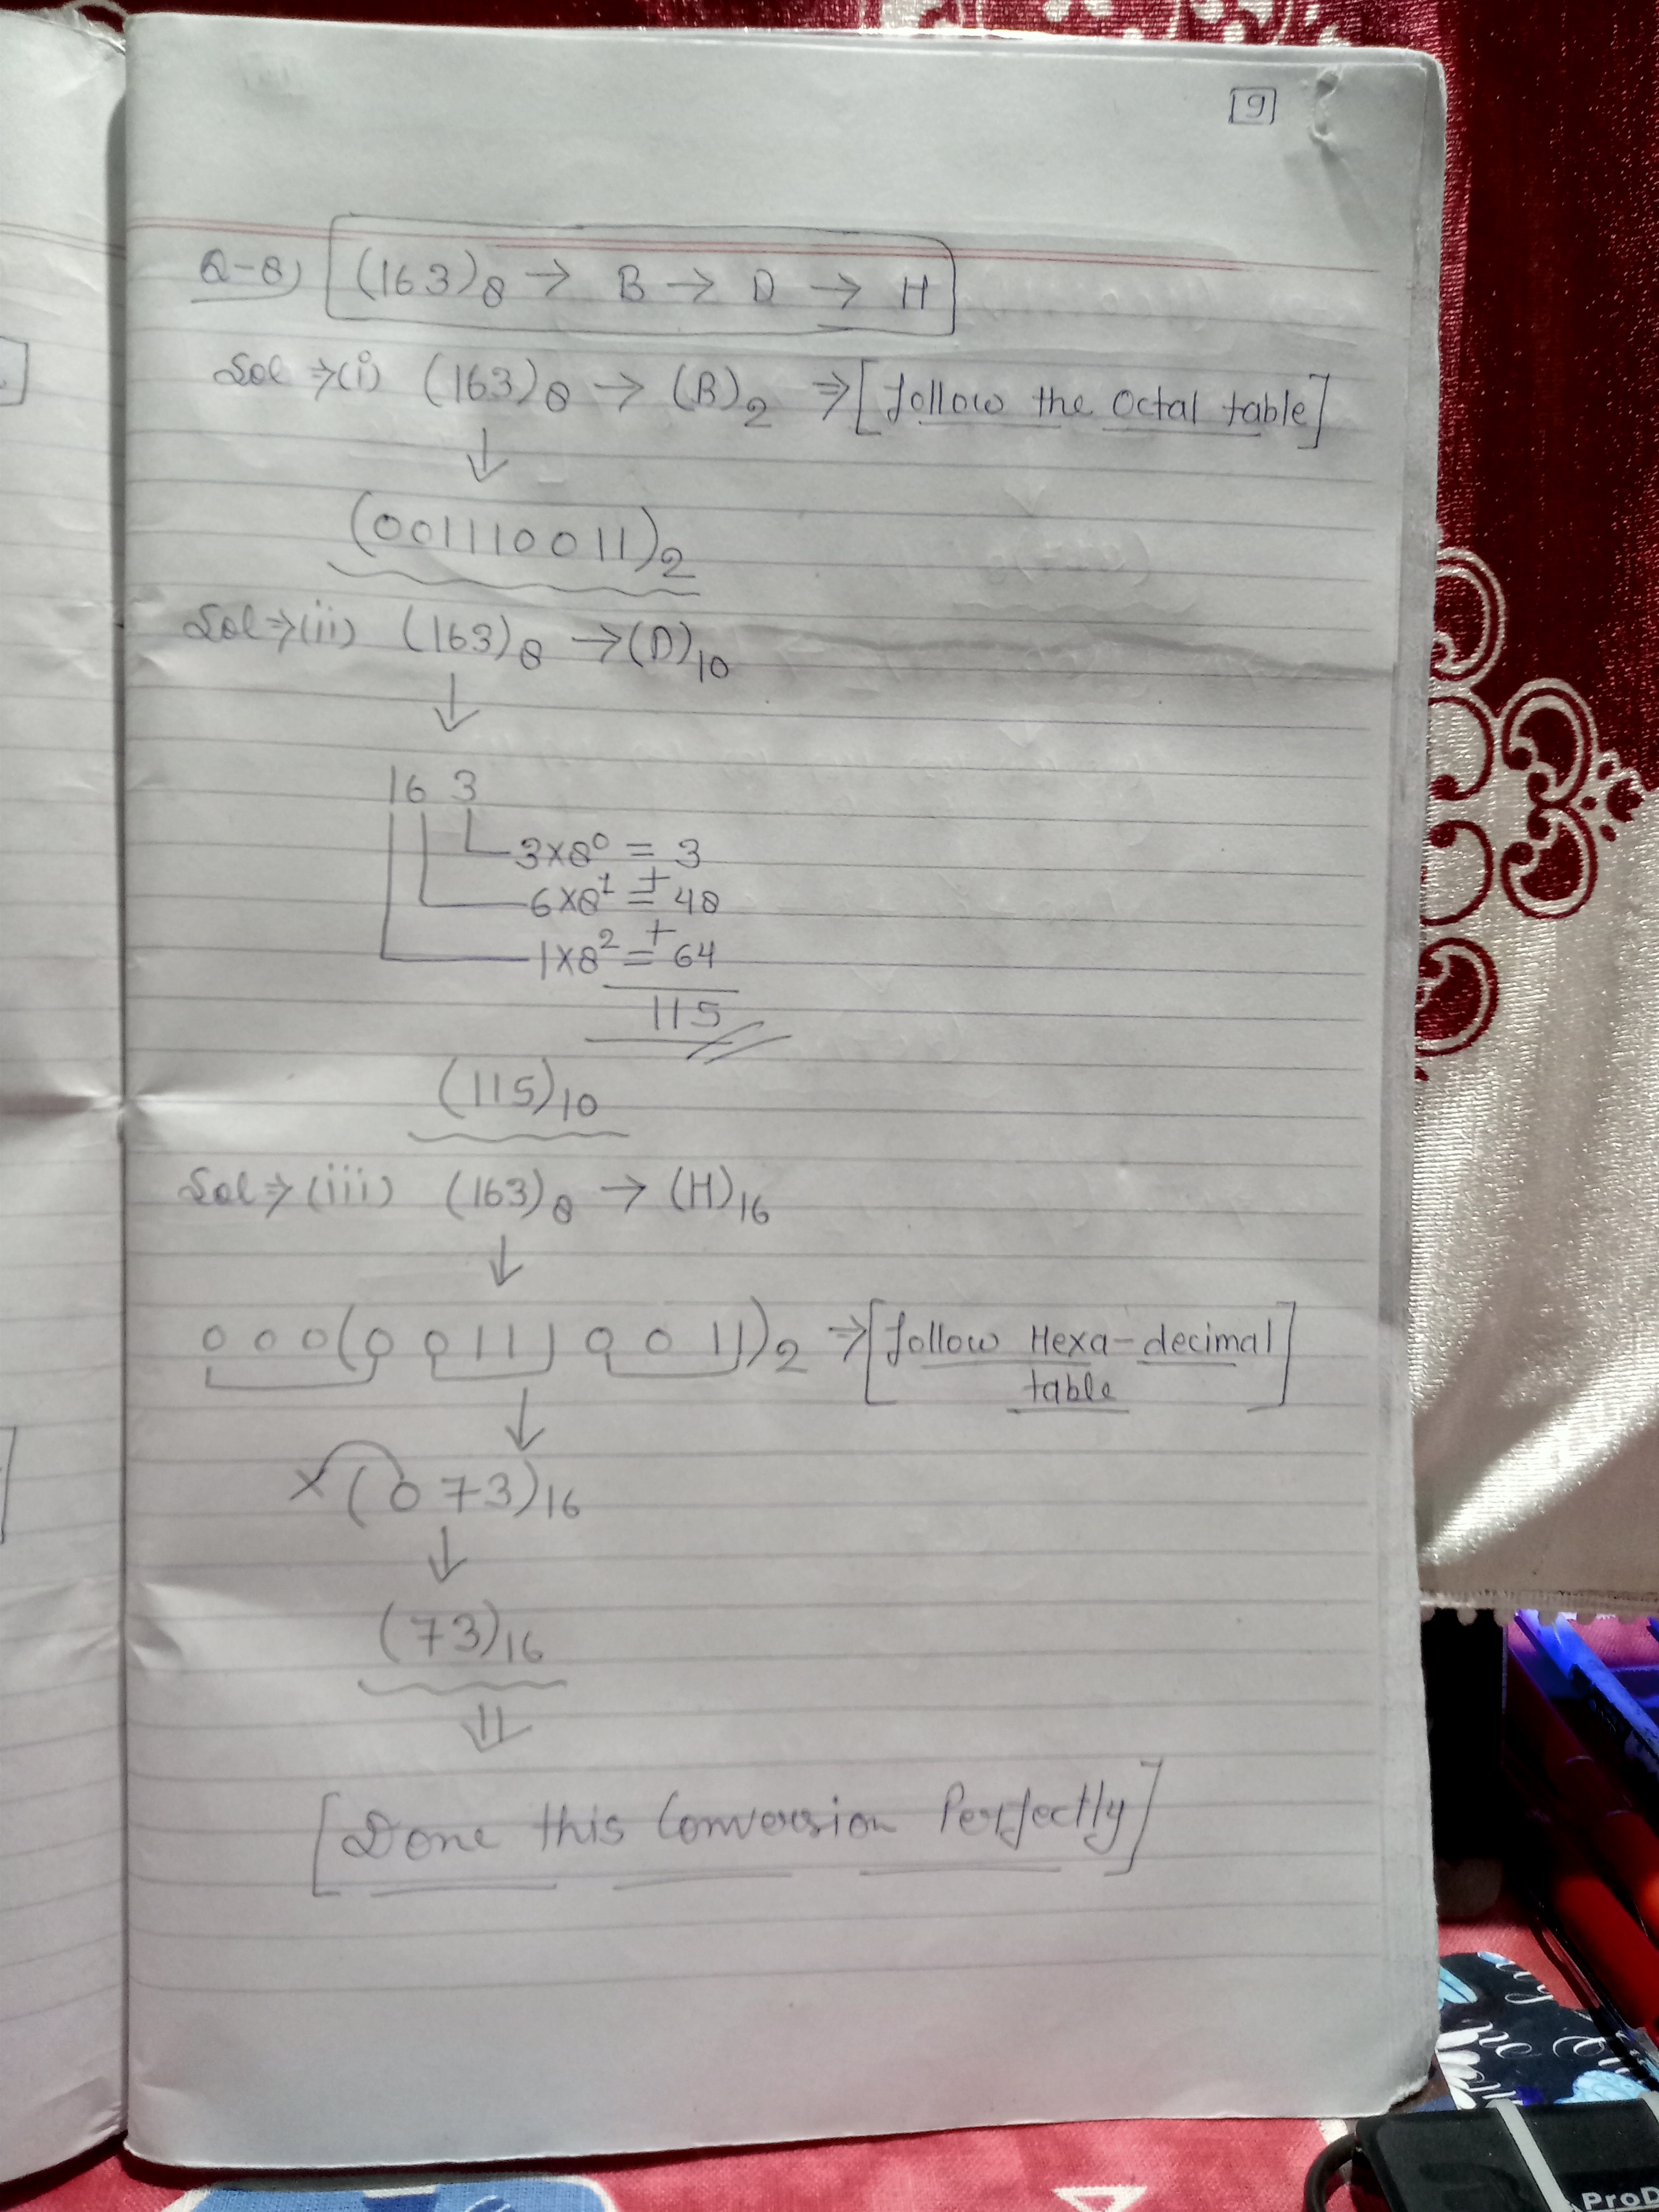 9
Q-8) (163)₈ → B → D → H
Sol ⇒ (i) (163)₈ → (B)₂ ⇒ [follow the Octal table]
↓
(001110011)₂
Sol ⇒ (ii) (163)₈ → (D)₁₀
↓
16 3
3×8⁰ = 3
+
6×8¹ = 48
+
1×8² = 64
115
(115)₁₀
Sol ⇒ (iii) (163)₈ → (H)₁₆
↓
000(001110011)₂ ⇒ [follow Hexa-decimal
table]
↓
×(073)₁₆
↓
(73)₁₆
⇓
[Done this Conversion Perfectly]